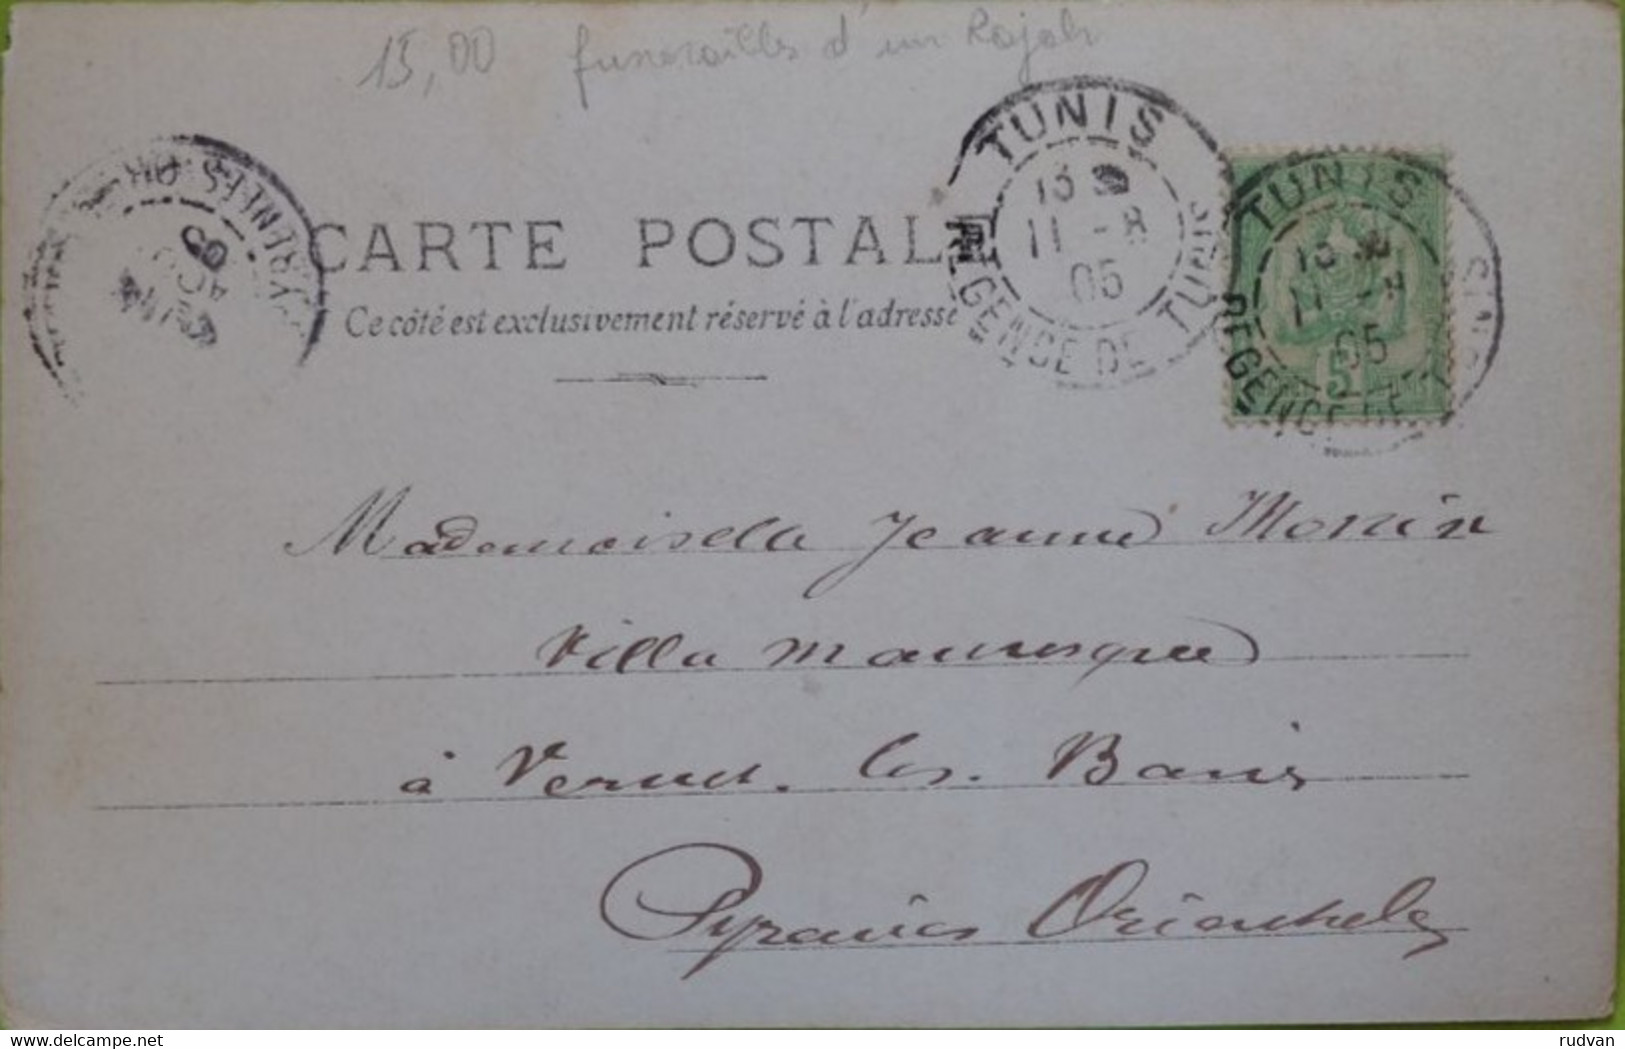 15,00 funerailles d'un Rajah
TUNIS
13
11 -8
05
REGENCE DE TUNIS
TUNIS
13
11 -8
05
REGENCE DE TUNIS
5
CARTE POSTALE
Ce côté est exclusivement réservé à l'adresse
Mademoiselle Jeanne Monin
Villa Mauresque
à Vernet-les-Bains
Pyrénées Orientales
rudvan